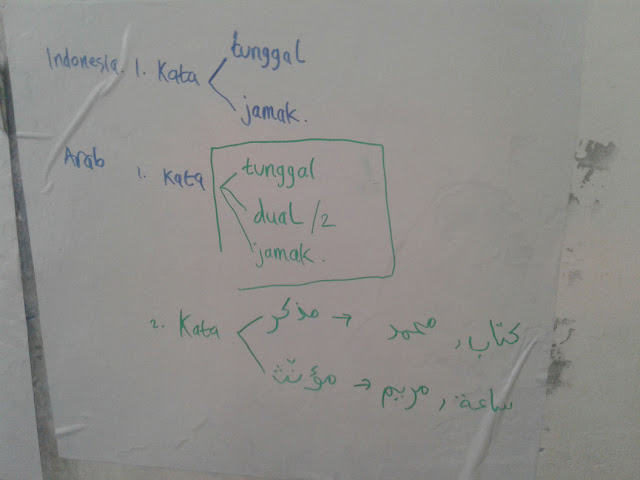 tunggal
Indonesia. 1. Kata
jamak.
Arab 1. Kata
tunggal
dual /2
jamak.
2. Kata
مذكر → محمد, كتاب
مؤنّث → مريم, ساعة